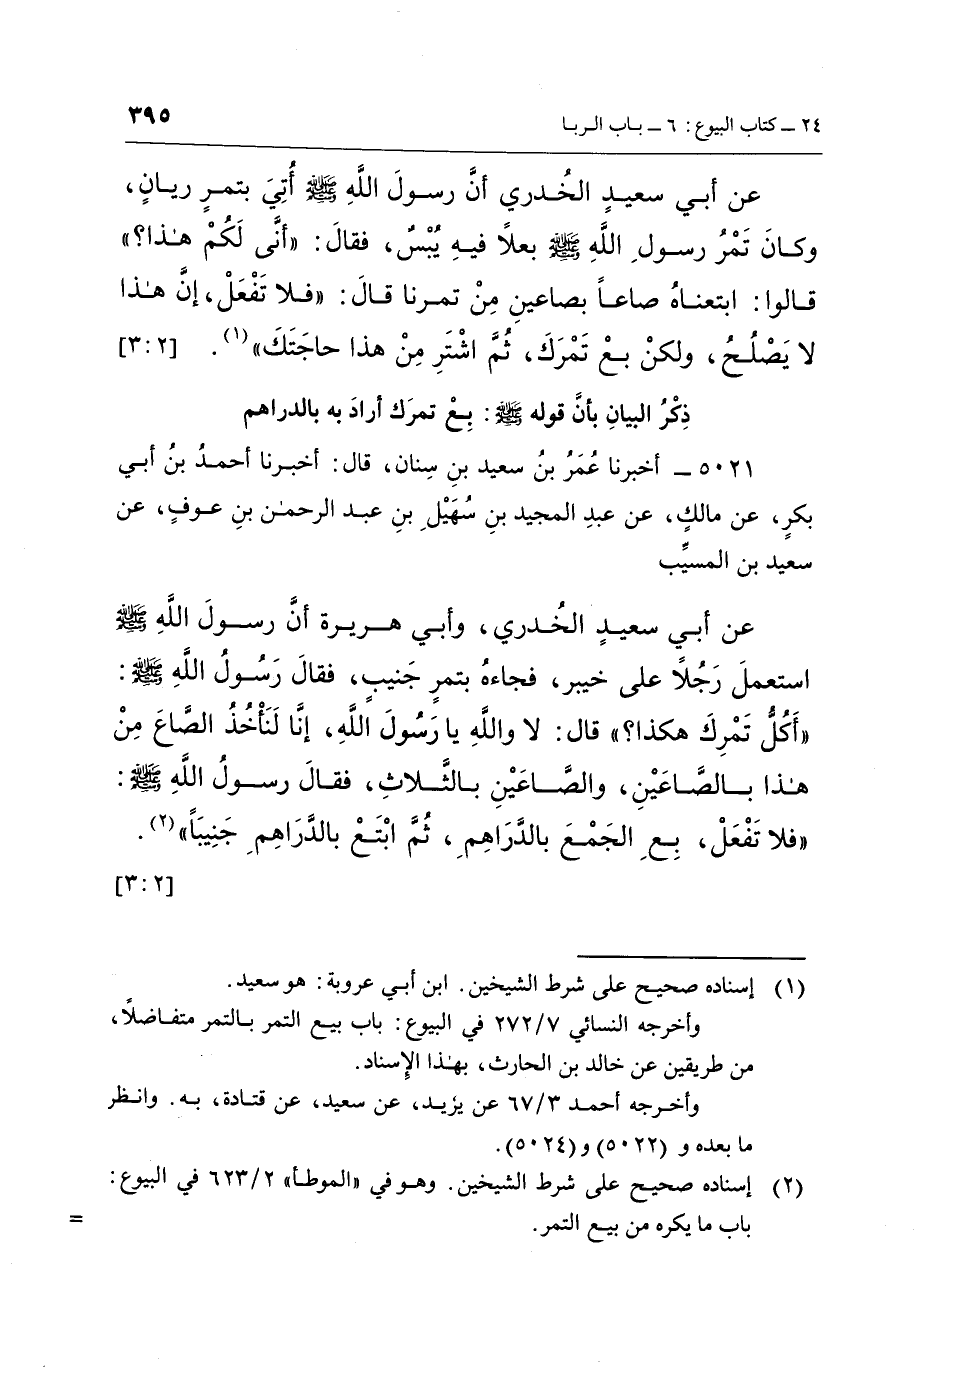 ٢٤ ــ كتاب البيوع: ٦ ــ باب الربا ٣٩٥
عن أبي سعيدٍ الخُدري أنَّ رسولَ اللَّهِ ﷺ أُتِيَ بتمرٍ ريانٍ،
وكانَ تَمْرُ رسولِ اللَّهِ ﷺ بعلاً فيهِ يُبْسٌ، فقالَ: «أنَّى لَكُمْ هٰذا؟»
قالوا: ابتعناهُ صاعاً بصاعينِ مِنْ تمرنا قالَ: «فلا تَفْعَلْ، إنَّ هٰذا
لا يَصْلُحُ، ولكنْ بِعْ تَمْرَكَ، ثُمَّ اشْتَرِ مِنْ هذا حاجَتَكَ»(١). [٢:٣]
ذِكْرُ البيانِ بأنَّ قوله ﷺ: بِعْ تمرَك أرادَ به بالدراهم
٥٠٢١ ــ أخبرنا عُمَرُ بنُ سعيد بنِ سِنان، قال: أخبرنا أحمدُ بنُ أبي
بكرٍ، عن مالكٍ، عن عبدِ المجيد بنِ سُهَيْلِ بنِ عبد الرحمٰن بنِ عوفٍ، عن
سعيد بن المسيِّب
عن أبي سعيدٍ الخُدري، وأبي هريرة أنَّ رسولَ اللَّهِ ﷺ
استعملَ رَجُلاً على خيبر، فجاءهُ بتمرٍ جَنيبٍ، فقالَ رَسُولُ اللَّهِ ﷺ:
«أَكُلُّ تَمْرِكَ هكذا؟» قال: لا واللَّهِ يا رَسُولَ اللَّهِ، إنَّا لَنَأْخُذُ الصَّاعَ مِنْ
هٰذا بالصَّاعَيْنِ، والصَّاعَيْنِ بالثَّلاثِ، فقالَ رسولُ اللَّهِ ﷺ:
«فلا تَفْعَلْ، بِعِ الجَمْعَ بالدَّرَاهِمِ، ثُمَّ ابْتَعْ بالدَّرَاهِمِ جَنِيبَاً»(٢).
[٢:٣]
(١) إسناده صحيح على شرط الشيخين. ابن أبي عروبة: هو سعيد.
وأخرجه النسائي ٢٧٢/٧ في البيوع: باب بيع التمر بالتمر متفاضلاً،
من طريقين عن خالد بن الحارث، بهٰذا الإسناد.
وأخرجه أحمد ٦٧/٣ عن يزيد، عن سعيد، عن قتادة، به. وانظر
ما بعده و (٥٠٢٢) و(٥٠٢٤).
(٢) إسناده صحيح على شرط الشيخين. وهو في «الموطأ» ٦٢٣/٢ في البيوع:
باب ما يكره من بيع التمر. =